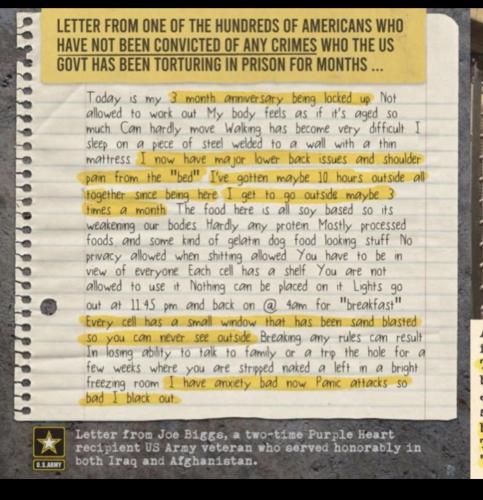 LETTER FROM ONE OF THE HUNDREDS OF AMERICANS WHO
HAVE NOT BEEN CONVICTED OF ANY CRIMES WHO THE US
GOVT HAS BEEN TORTURING IN PRISON FOR MONTHS ...
Today is my 3 month anniversary being locked up Not
allowed to work out My body feels as if it's aged so
much Can hardly move Walking has become very difficult I
sleep on a piece of steel welded to a wall with a thin
mattress I now have major lower back issues and shoulder
pain from the "bed" I've gotten maybe 10 hours outside all
together since being here I get to go outside maybe 3
times a month The food here is all soy based so its
weakening our bodies Hardly any protein Mostly processed
foods, and some kind of gelatin dog food looking stuff No
privacy allowed when shitting allowed You have to be in
view of everyone Each cell has a shelf You are not
allowed to use it Nothing can be placed on it Lights go
out at 11 45 pm and back on @ 4am for "breakfast"
Every cell has a small window that has been sand blasted
so you can never see outside Breaking any rules can result
In losing ability to talk to family or a trip the hole for a
few weeks where you are stripped naked a left in a bright
freezing room I have anxiety bad now Panic attacks so
bad I black out
Letter from Joe Biggs, a two-time Purple Heart
recipient US Army veteran who served honorably in
both Iraq and Afghanistan.
U.S.ARMY